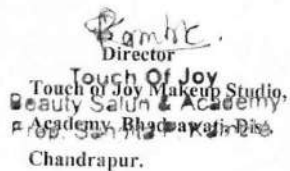 Director
Touch Of Joy
Touch of Joy Makeup Studio,
Beauty Salun & Academy
Academy, Bhadrawati, Dis.
Prop.
Chandrapur.